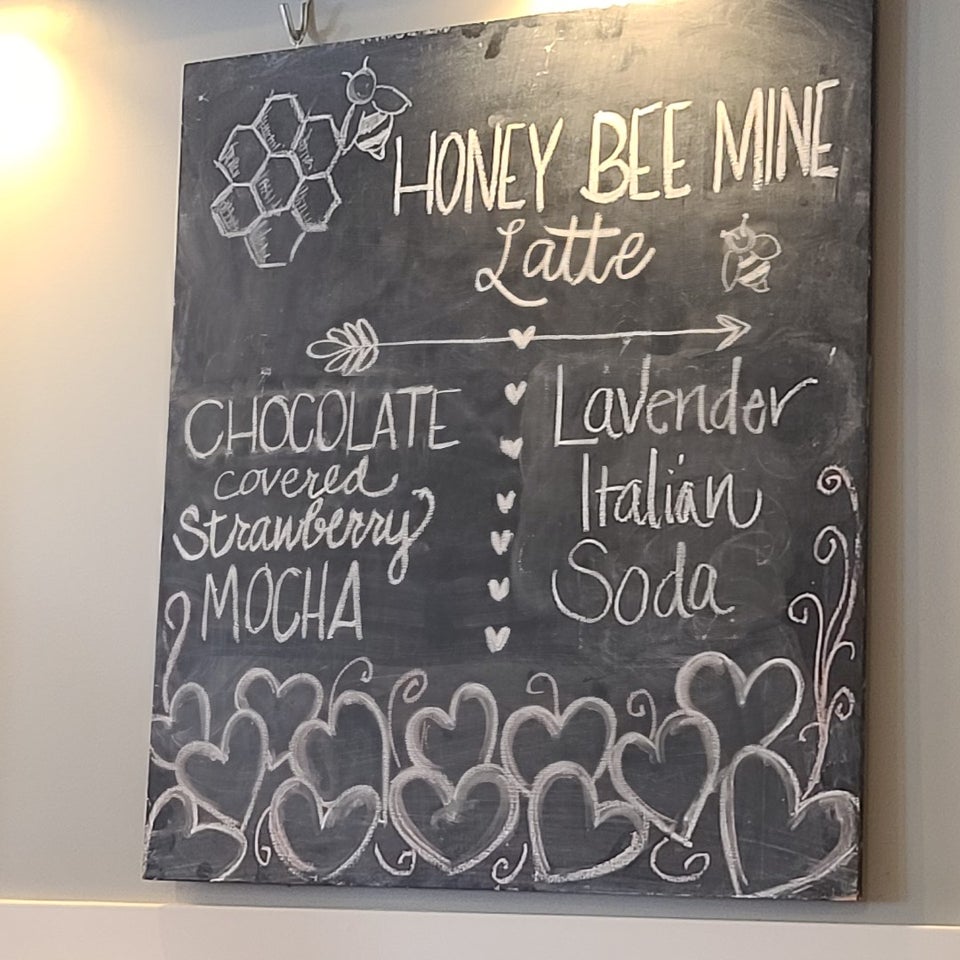 HONEY BEE MINE
Latte
CHOCOLATE
covered
Strawberry
MOCHA
Lavender
Italian
Soda